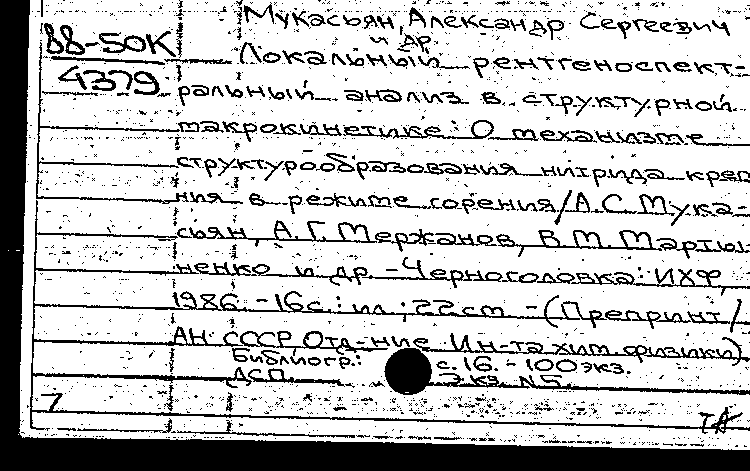 Мукасьян, Александр Сергеевич
и др.
88-50К
4379
Локальный рентгеноспект-
ральный анализ в структурной
макрокинетике: О механизме
структурообразования нитрида крем
ния в режиме горения/А.С.Мука-
сьян, А.Г.Мержанов, В.М.Марты
ненко и др. -Черноголовка: ИХФ,
1986. -16с.: ил.; 22см -(Препринт/
АН СССР Отд-ние Ин-та хим. физики).
Библиогр.: с.16. - 100экз.
ДСП. Экз. N5.
7